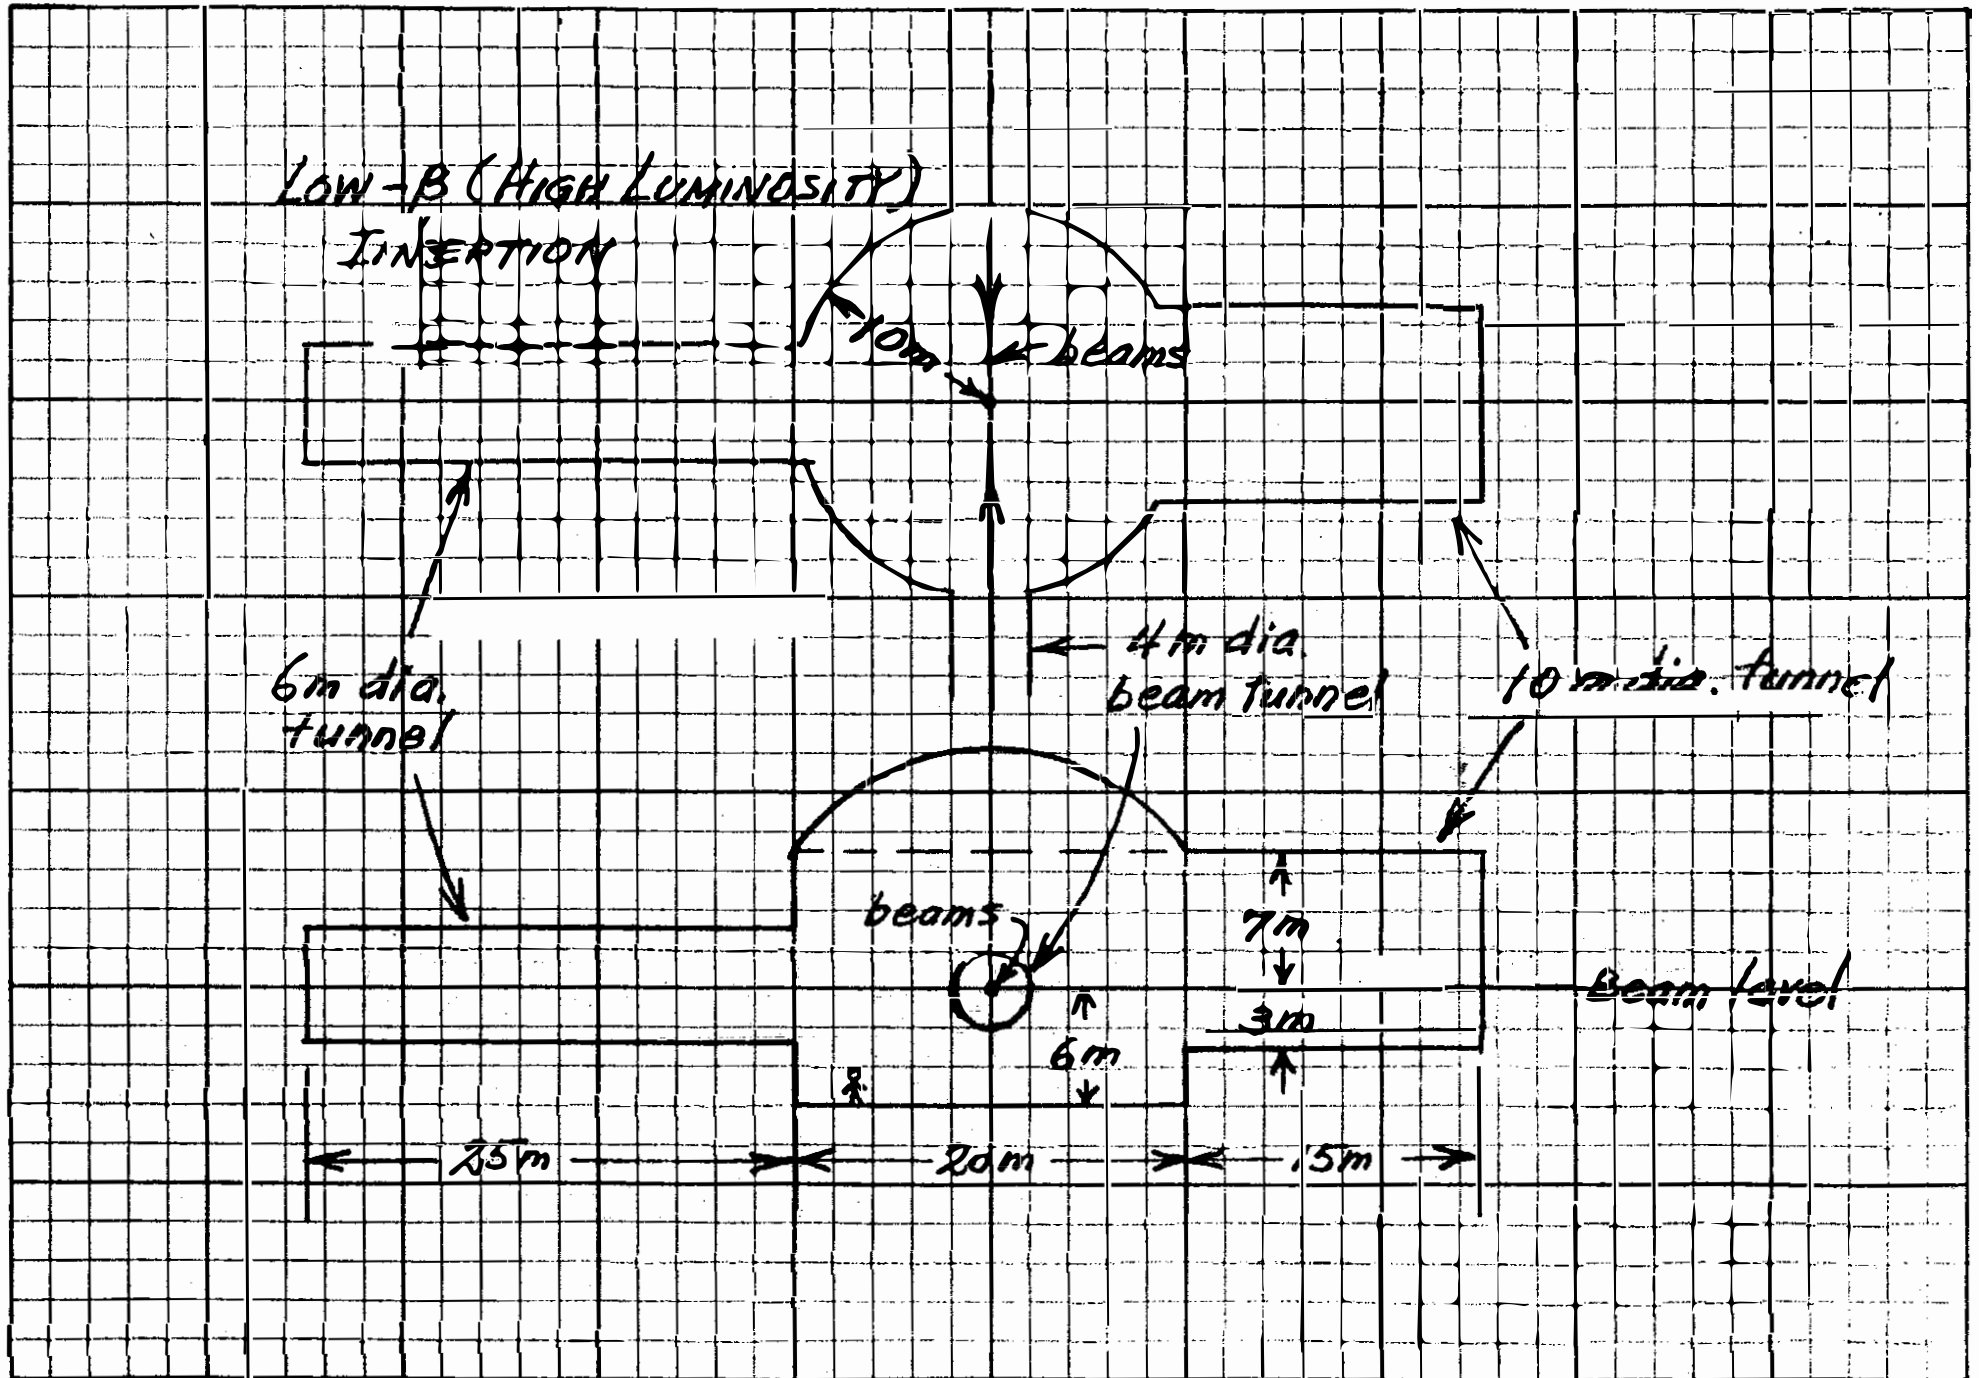 LOW-β (HIGH LUMINOSITY)
INSERTION
10m
beams
4m dia.
beam tunnel
6m dia.
tunnel
10 m dia. tunnel
beams
7m
Beam level
3m
6m
25m
20m
15m